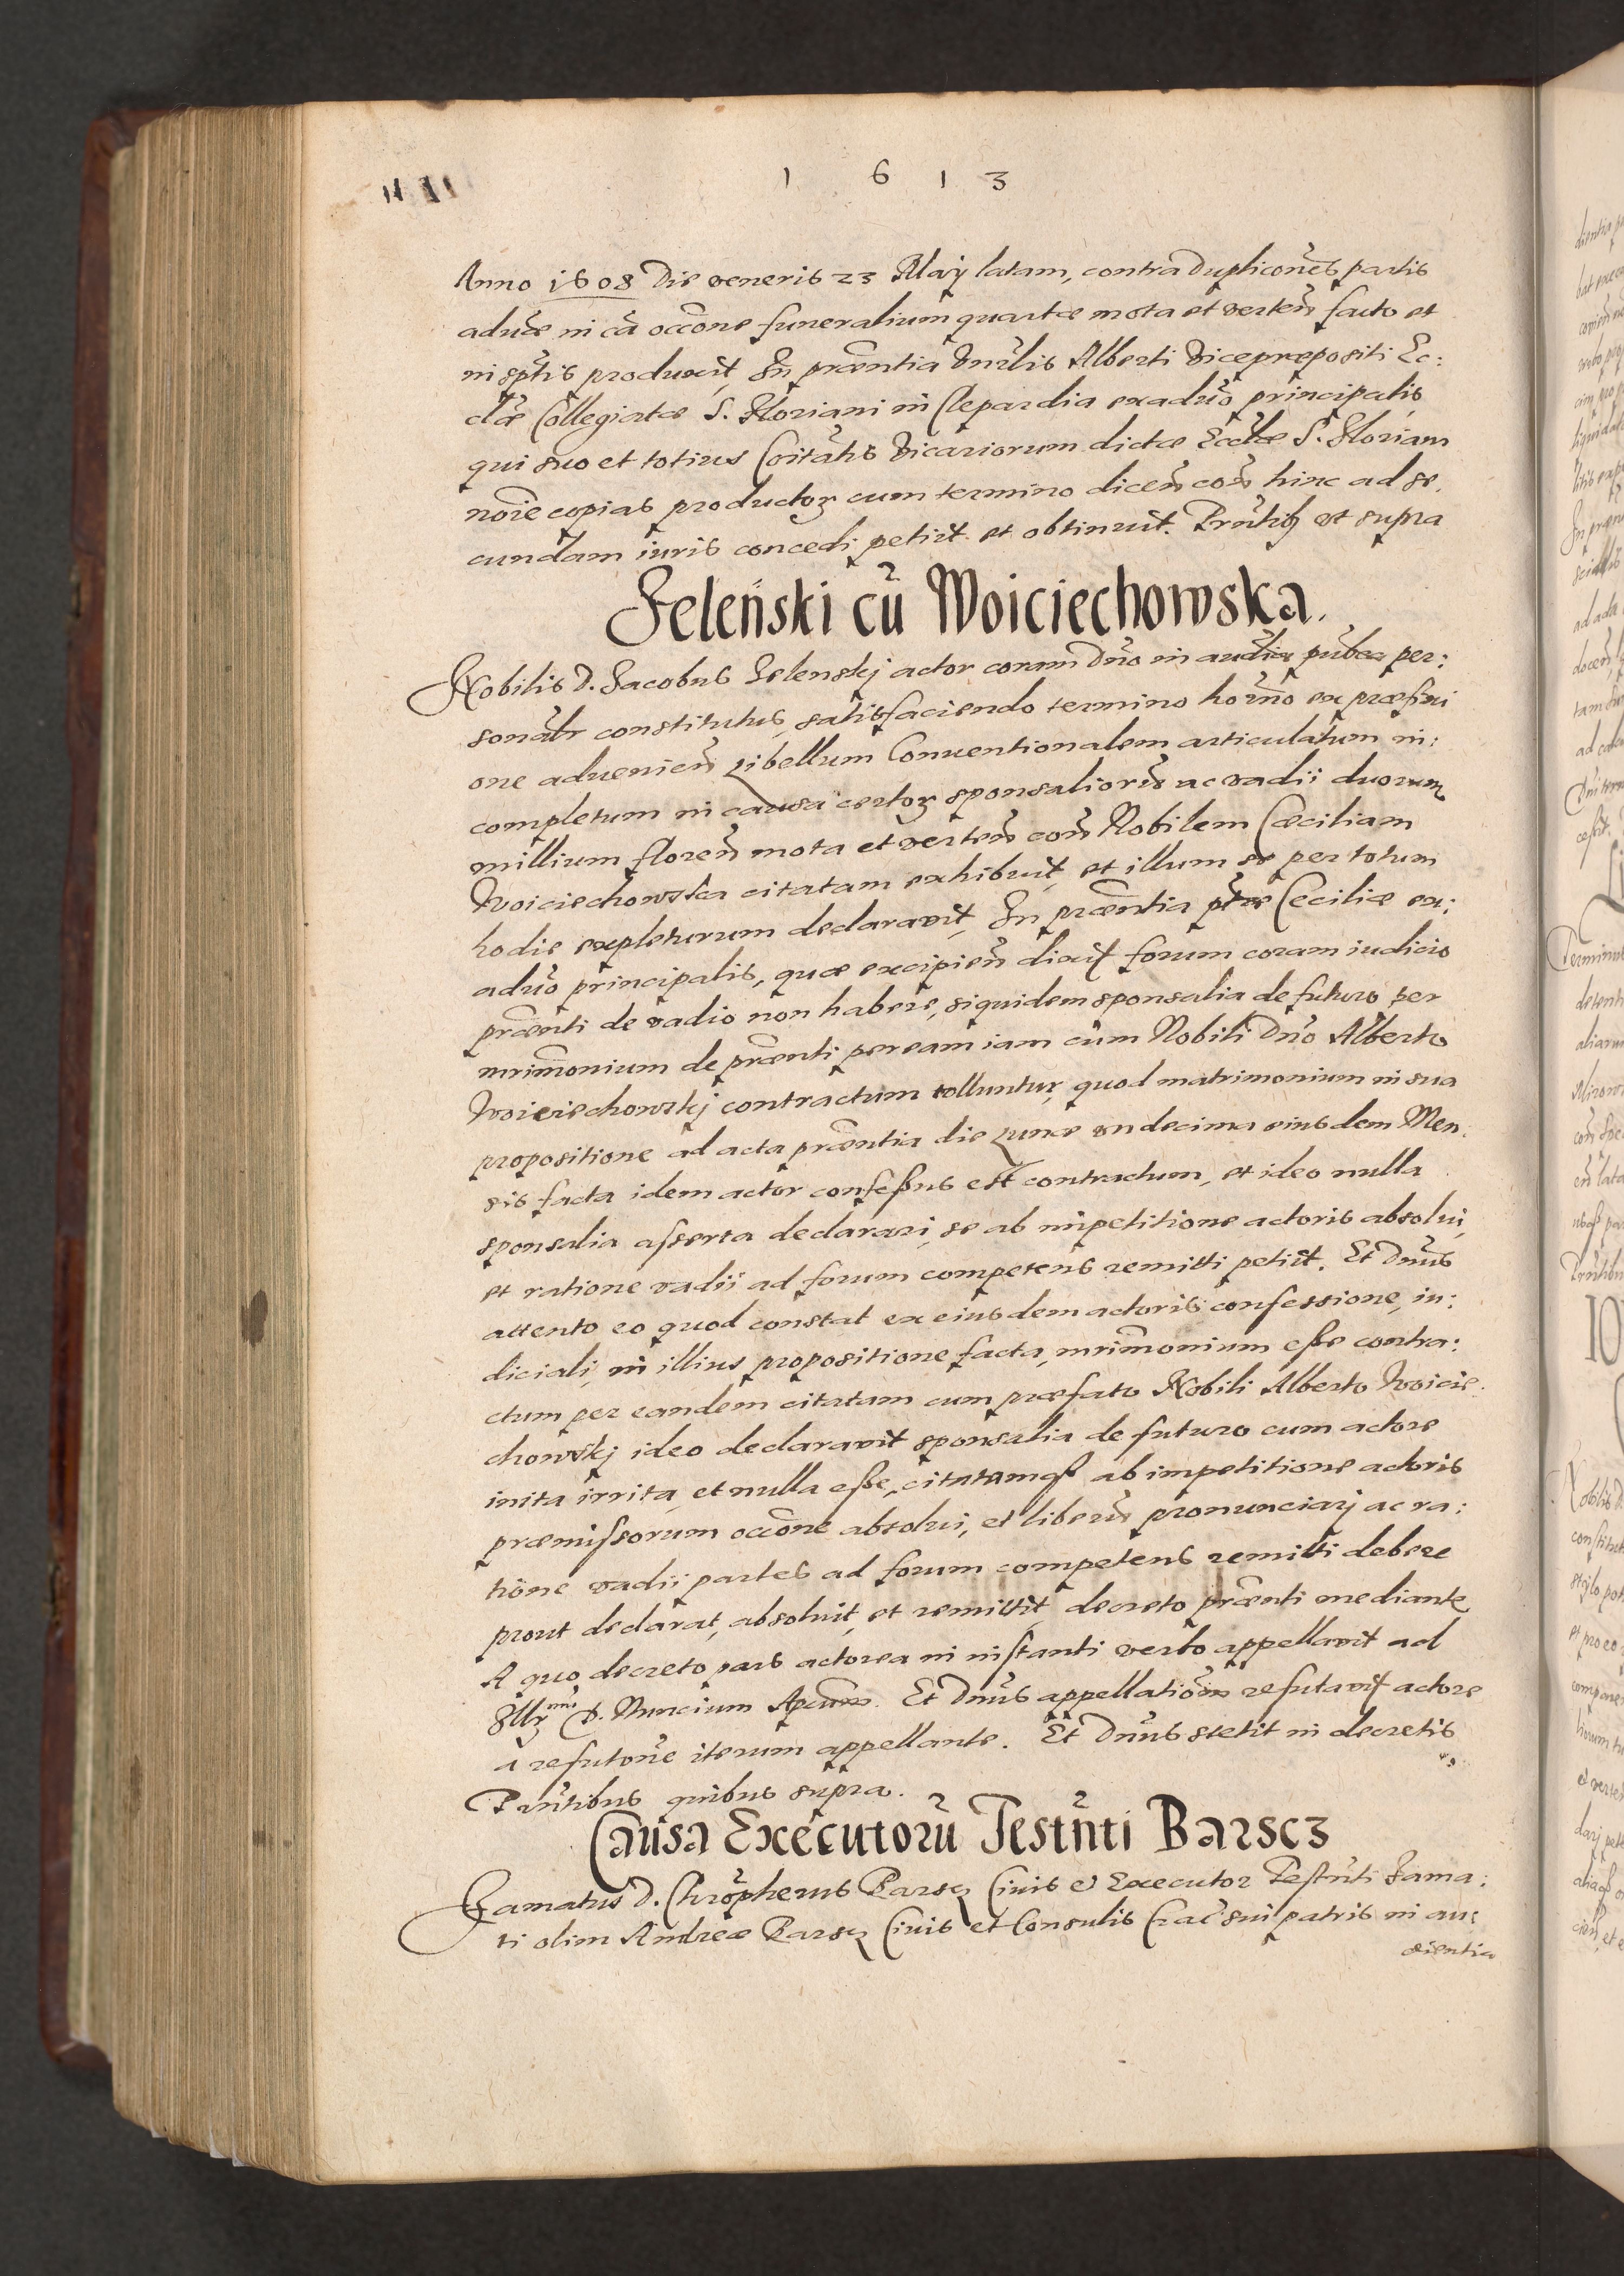 1 6 1 3
Anno 1608 Die veneris 23 Maij latam, contra Duplicōnes partis
aduersæ in cā occōne funeralium quartæ mota et verteñ facto et
in sptis produxit, In præntia Vnrlis Alberti Vicepræpositi Ec:
clæ Collegiatæ S. Floriani in Clepardia exaduo principalis
qui suo et totius Coitatis Vicariorum dictæ Ecclæ S. Floriani
noie copias productoꝝ cum termino diceñ coñ hinc ad se,
cundam iuris concedi petiit et obtinuit. Prntibꝫ vt supra
Zeleński cū Woiciechowska.
Nobilis D. Jacobus Zelenskj actor coram Dno in audiā publca per:
sonalr constitutus, satisfaciendo termino horno ex præfini
one adueniēñ Libellum Conuentionalem articulatum in:
completum in causa certoꝝ sponsaliorū ac vadii duorum
millium floreñ mota et verteñ coñ Nobilem Cæciliam
Woiciechowska citatam exhibuit, et illum se per totum
hodie expleturum declarauit, In præntia ptæ Ceciliæ ex:
aduo principalis, quæ excipieñ dixit forum coram iudicio
prænti de vadio non habere, siquidem sponsalia de futuro per
mrimonium de prænti per eam iam cum Nobili Dno Alberto
Woiciechowskj contractum tolluntur, quod matrimonium in sua
propositione ad acta præntia die Lunæ vndecima eiusdem Men:
sis facta idem actor confessus est contractum, et ideo nulla
sponsalia asserta declarari, se ab impetitione actoris absolui,
et ratione vadii ad forum competens remitti petiit. Et Dnus
attento eo quod constat ex eiusdem actoris confessione iu:
diciali, in illius propositione facta, mrimonium esse contra:
ctum per eandem citatam cum præfato Nobili Alberto Woicie:
chowskj ideo declarauit sponsalia de futuro cum actore
inita irrita et nulla esse, citatamqꝫ ab impetitione actoris
præmissorum occōne absolui, et liberā pronunciarj ac ra:
tione vadii partes ad forum competens remitti debere
prout declarat, absoluit, et remittit decreto prænti mediante
A quo decreto pars actorea in instanti verbo appellauit ad
Illꝝmū D. Nuncium Apcum. Et Dnus appellationem refutauit actore
a refutone iterum appellante. Et Dnus stetit in decretis
Prntibus quibus supra.
Causa Executorū Testnti Barscz
Famatus D. Chrophorus Barscz Ciuis et Executor Testnti Fama:
ti olim Andreæ Barscz Ciuis et Consulis Crac sui patris in au:
dientia